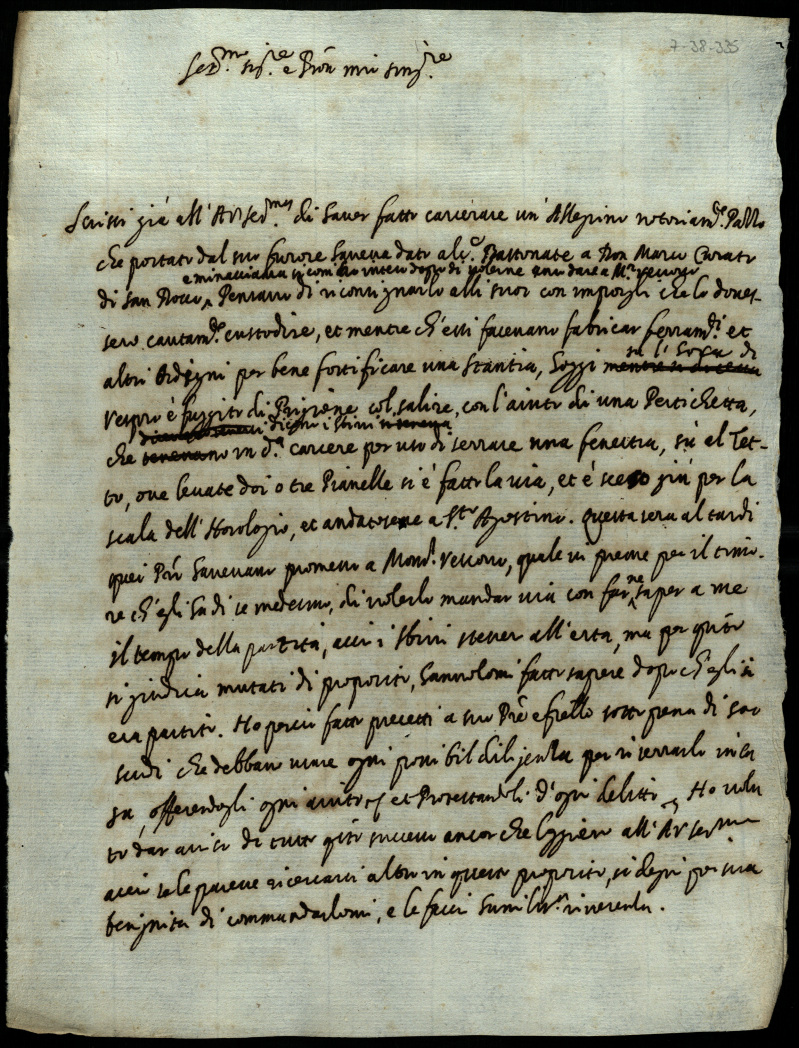 7-38-335
Ser.mo sig.re e Pron mio sing.re
Scrissi già all'A.V. Ser.ma di haver fatto carcerare un' Allegrino notoriam.te Pazzo
che portato dal suo furore haveva dato alc.e Bastonate a Don Marco Curato
e minacciava si com' ho inteso doppo di volerne anco dare a M.r Vescovo
di San Rocco, Pensavo di riconsignarlo alli suoi con imporgli che lo doves-
sero cautam.te custodire, et mentre ch'essi facevano fabricar ferram.ti et
altri ordegni per bene fortificare una stantia, hoggi su l'hora di
Vespro è fuggito di Prigione col salire, con l'aiuto di una Pertichetta,
dicono i sbirri
che in d.a carcere per uso di serrare una fenestra, sù al Tet-
to, ove levate doi o tre Pianelle si è fatto la via, et è sceso giù per la
scala dell'Horologio, et andatosene a S.to Agostino. Questa sera al tardi
quei P.ri havevano promesso a Mons.r Vescovo, quale vi preme per il timo-
re ch'egli ha di se medesmo, di volerlo mandar via con farne saper a me
il tempo della partita, acciò i sbirri stesser all'erta, ma per quanto
si giudica mutati di proposito, hannolomi fatto sapere dopo ch'egli si
era partito. Ho perciò fatto precetti a suo P.re e fr.ello sotto pena di
scudi che debbano usare ogni possibil diligenza per riserrarlo in ca
sa, offerendogli ogni aiuto, et Protestandoli d'ogni delitto. Ho volu
to dar aviso di tutto q.to successo ancor che leggiero all'A.V. ser.ma
acciò se le paresse ricercarsi altro in questo proposito, si degni per sua
benignità di commandarlomi, e le facci humiliss.a riverenza.